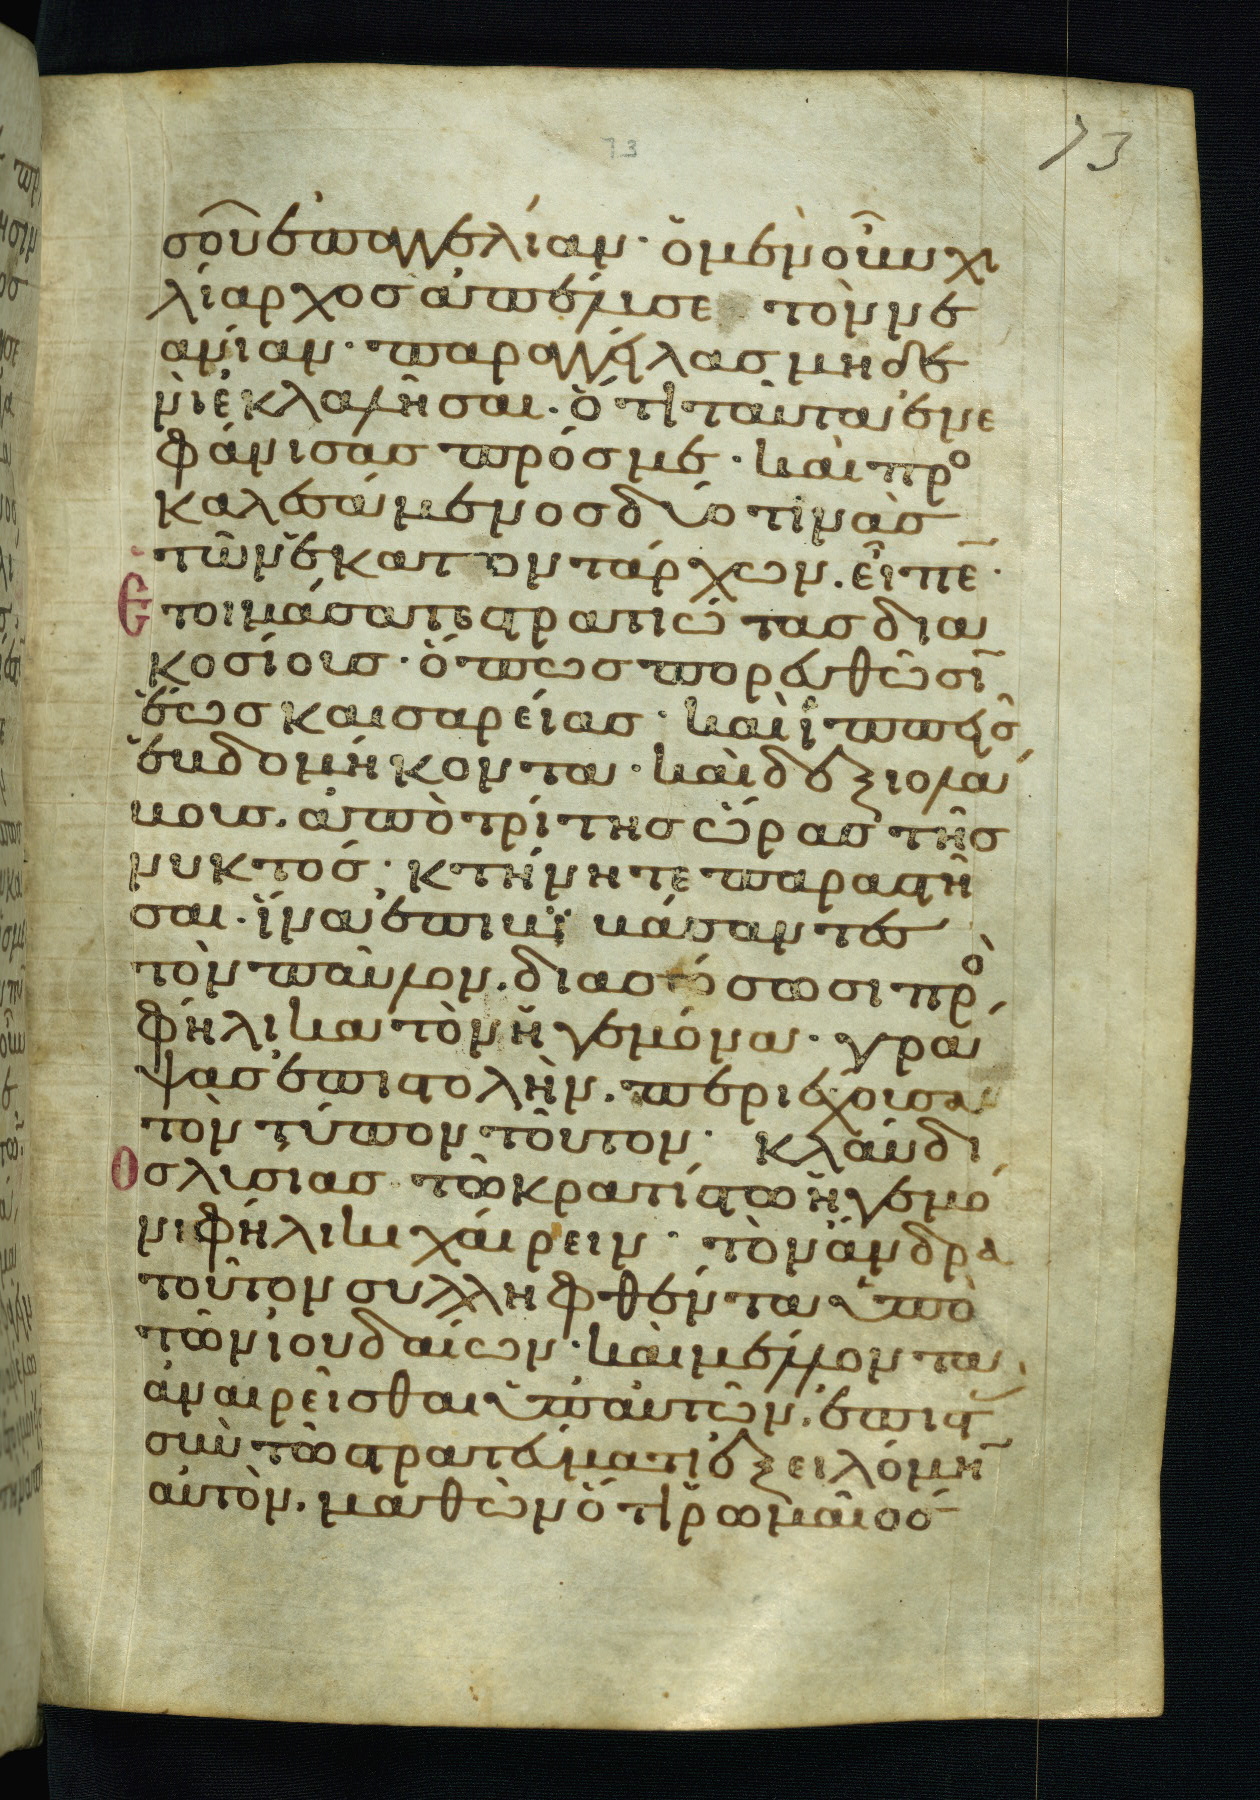 73
73
σοῦ ἐπαγγελίαν· ὁ μὲν οὖν χι
λίαρχος ἀπέλυσε τὸν νε
ανίαν· παραγγείλας μηδε
νὶ ἐκλαλῆσαι· ὅτι ταῦτα ἐνε
φάνισας πρός με· καὶ προ
καλεσάμενος δύο τινὰς
τῶν ἑκατοντάρχων. εἶπε̅·
Ἑτοιμάσατε στρατιώτας δια
κοσίους· ὅπως πορευθῶσι̅
ἕως καισαρείας· καὶ ἱππεῖς
ἑβδομήκοντα· καὶ δεξιολά
βους. ἀπὸ τρίτης ὥρας τῆς
νυκτός· κτήνη τε παραστῆ
σαι· ἵνα ἐπιβιβάσαντες
τὸν παῦλον. διασώσωσι πρὸ
φήλικα τὸν ἡγεμόνα· γρά
ψας ἐπιστολὴν. περιέχουσαν
τὸν τύπον τοῦτον· κλαύδι
Ος λυσίας τῶ κρατίστω ἡγεμό
νι φήλικι χαίρειν· τὸν ἄνδρα
τοῦτον συλληφθέντα ὑπὸ
τῶν ἰουδαίων· καὶ μέλλοντα
ἀναιρεῖσθαι ὑπ' αὐτῶν. ἐπιστ
σὺν τῶ στρατεύματι ἐξειλόμη̅
αὐτὸν. μαθὼν ὅτι ῥωμαῖος